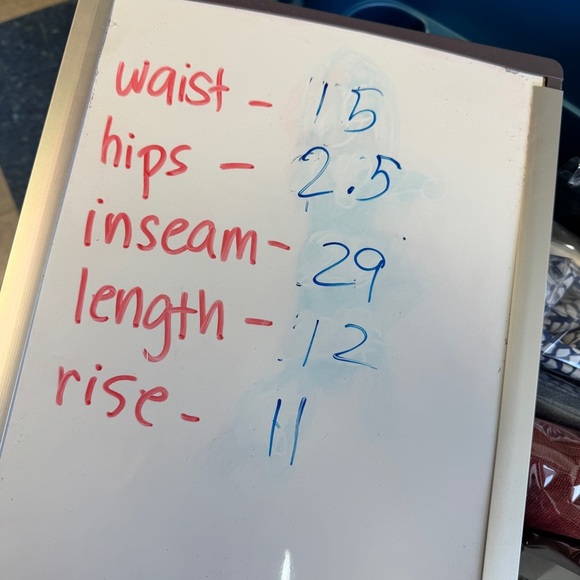 waist - 15
hips - 2.5
inseam - 29
length - 12
rise - 11